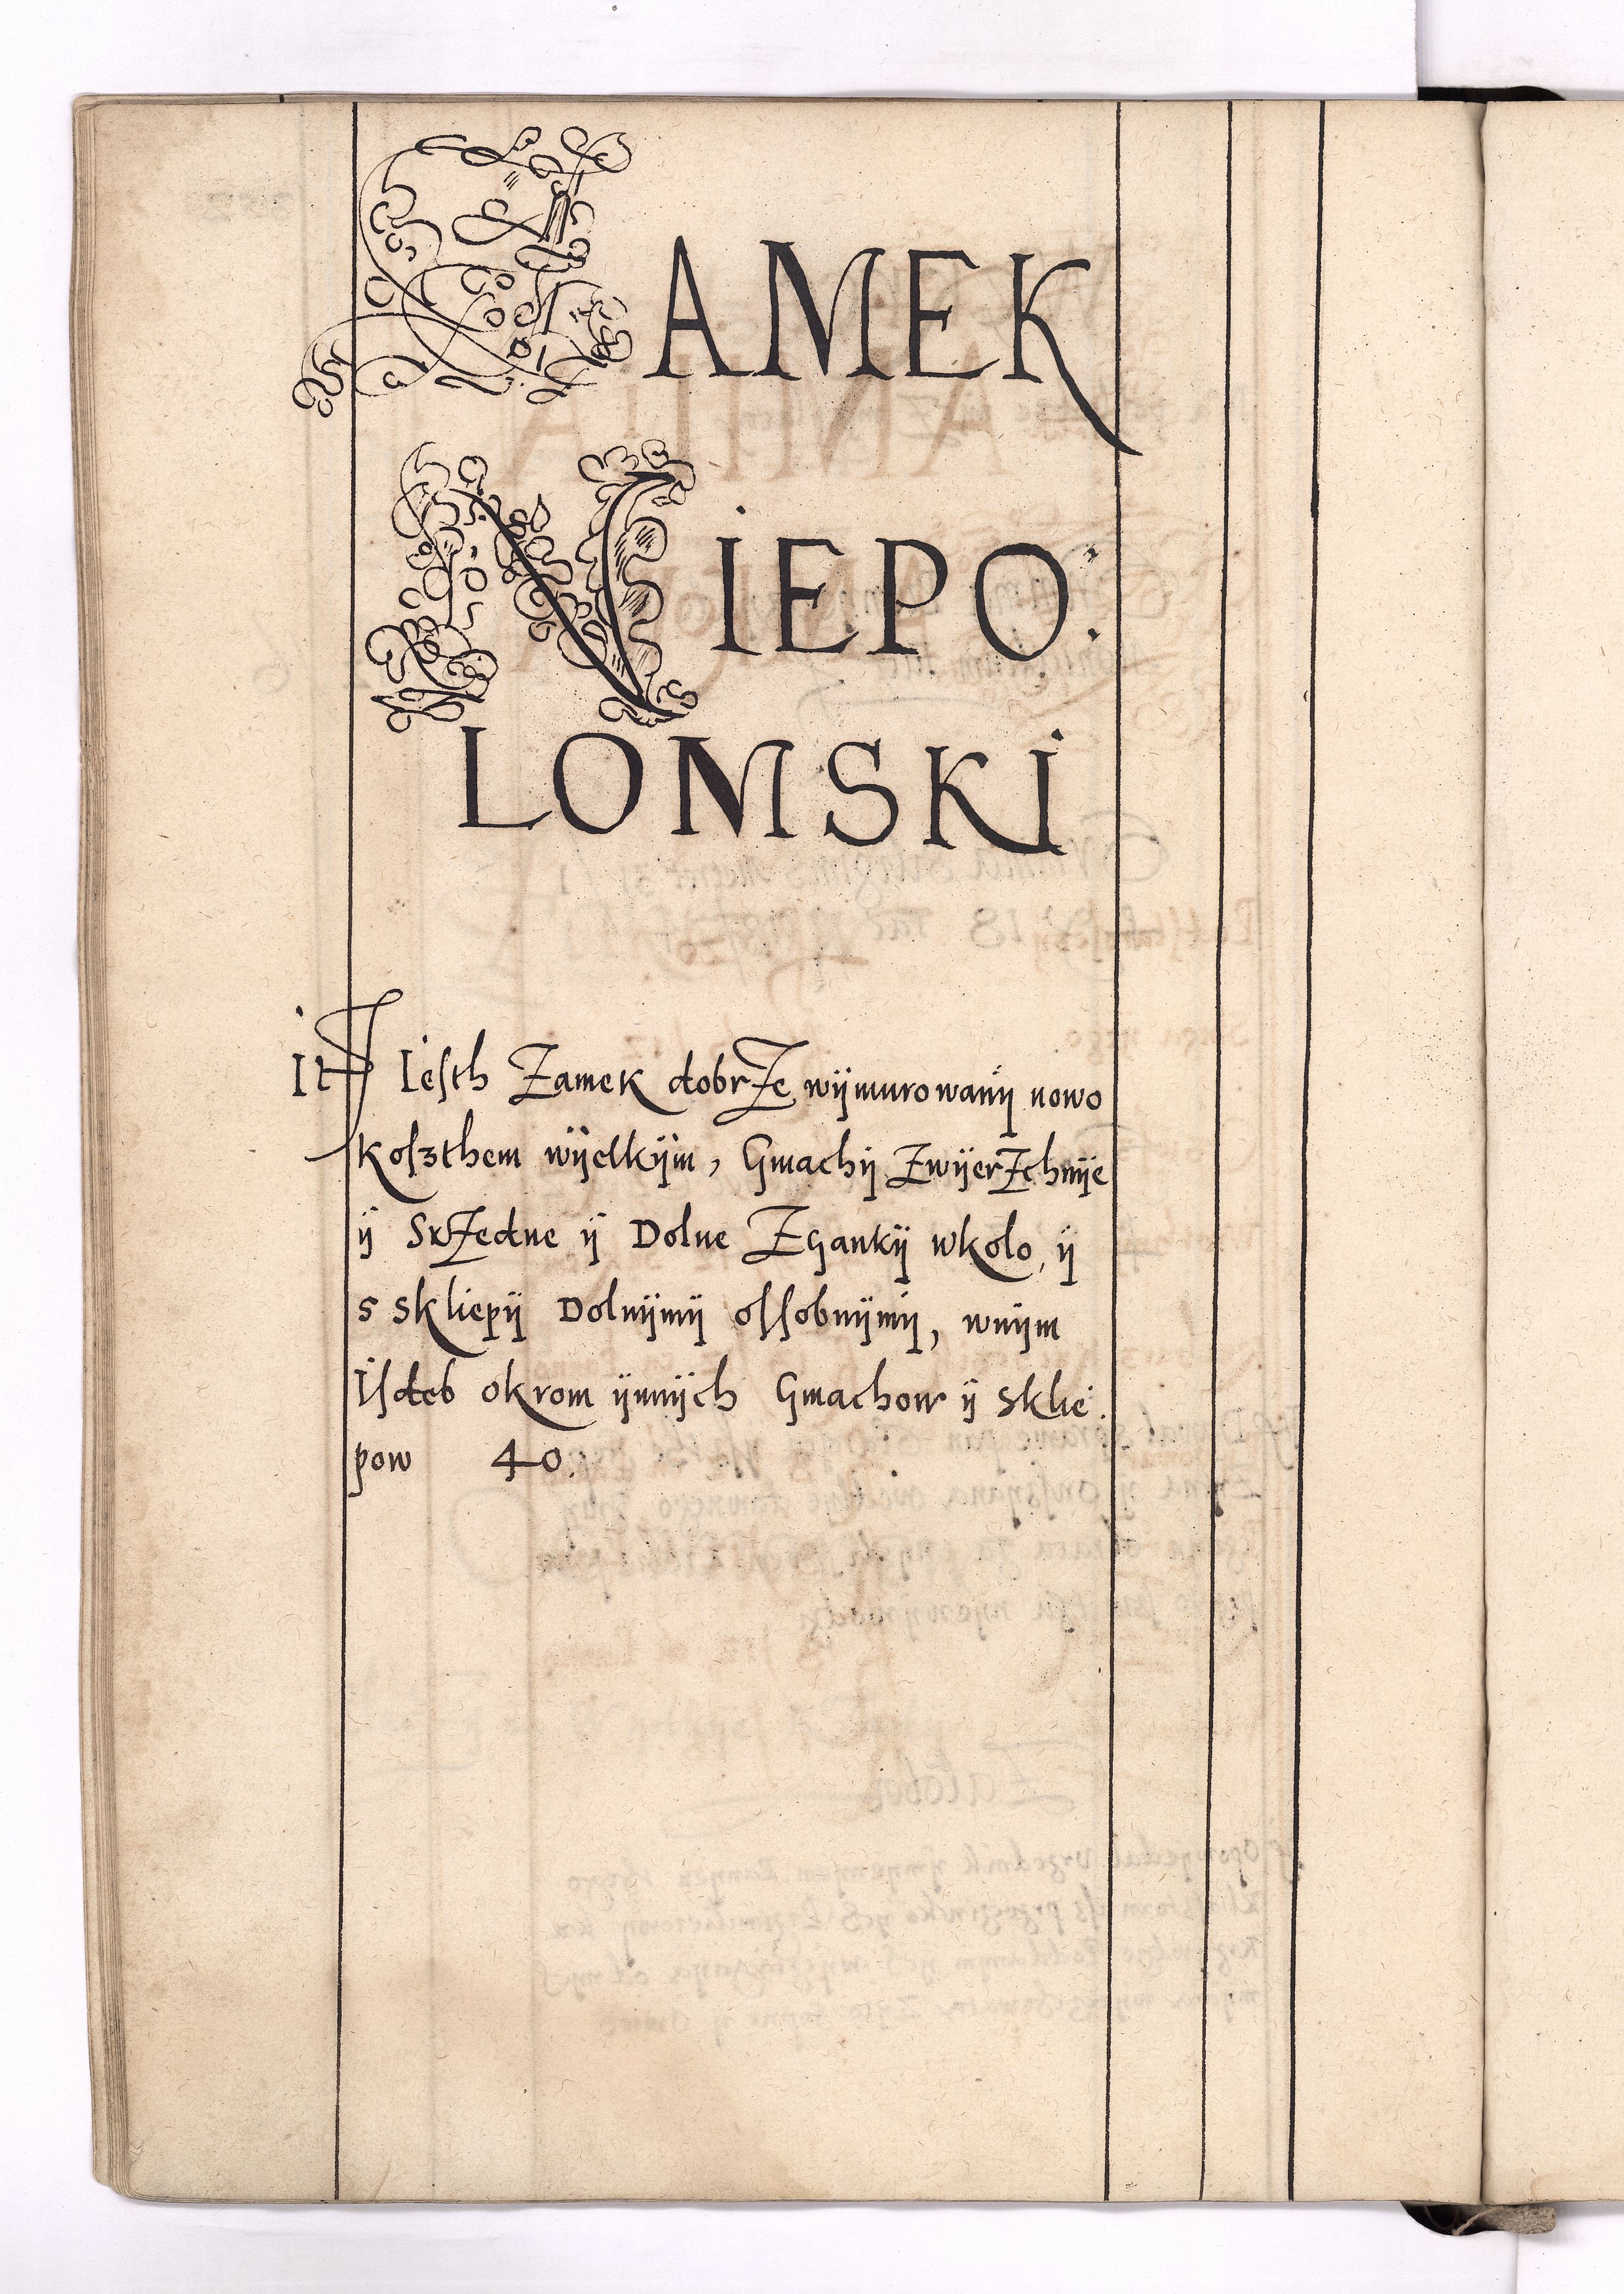 ZAMEK
NIEPO:
LOMSKI
It Iesth Zamek dobrZe wÿmurowanÿ nowo
kosʒthem wÿelkÿm, Gmachÿ ZwÿerZchnÿe
ÿ SrZedne ÿ Dolne Zgankÿ wkolo, ÿ
s skliepÿ Dolnÿmÿ ossobnÿmÿ, wnÿm
Isdeb okrom ÿnnÿch Gmachow ÿ sklie:
pow 40.